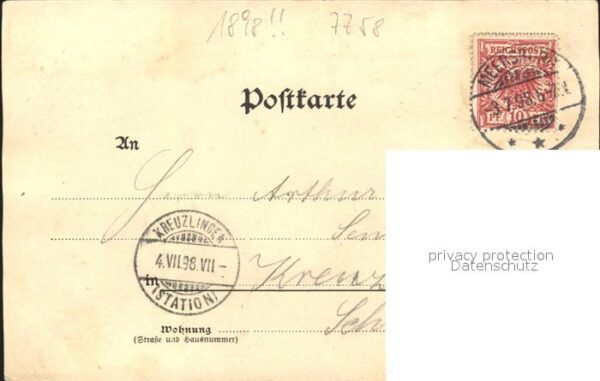 1898!! 7758
REICHSPOST
PF. 10
MEERSBURG
3.7.98.6-7
Postkarte
An
Herrn Arthur
Sem
KREUZLINGEN
4.VII.98.VII
(STATION)
in Kreuz
Sch
Wohnung
(Straße und Hausnummer)
privacy protection
Datenschutz